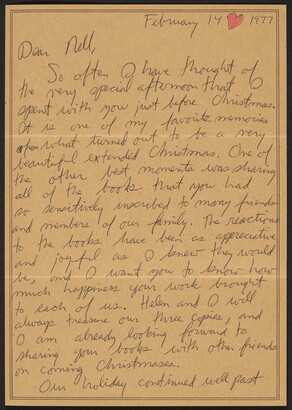 February 14 ❤ 1977
Dear Nell,
So often I have thought of
the very special afternoon that I
spent with you just before Christmas.
It is one of my favorite memories
of what turned out to be a very
beautiful extended Christmas. One of
the other best moments was sharing
all of the books that you had
so sensitively inscribed to many friends
and members of our family. The reactions
to the books have been as appreciative
and joyful as I knew they would
be, and I want you to know how
much happiness your work brought
to each of us. Helen and I will
always treasure our three copies, and
I am already looking forward to
sharing your books with other friends
on coming Christmases.
Our holiday continued well past